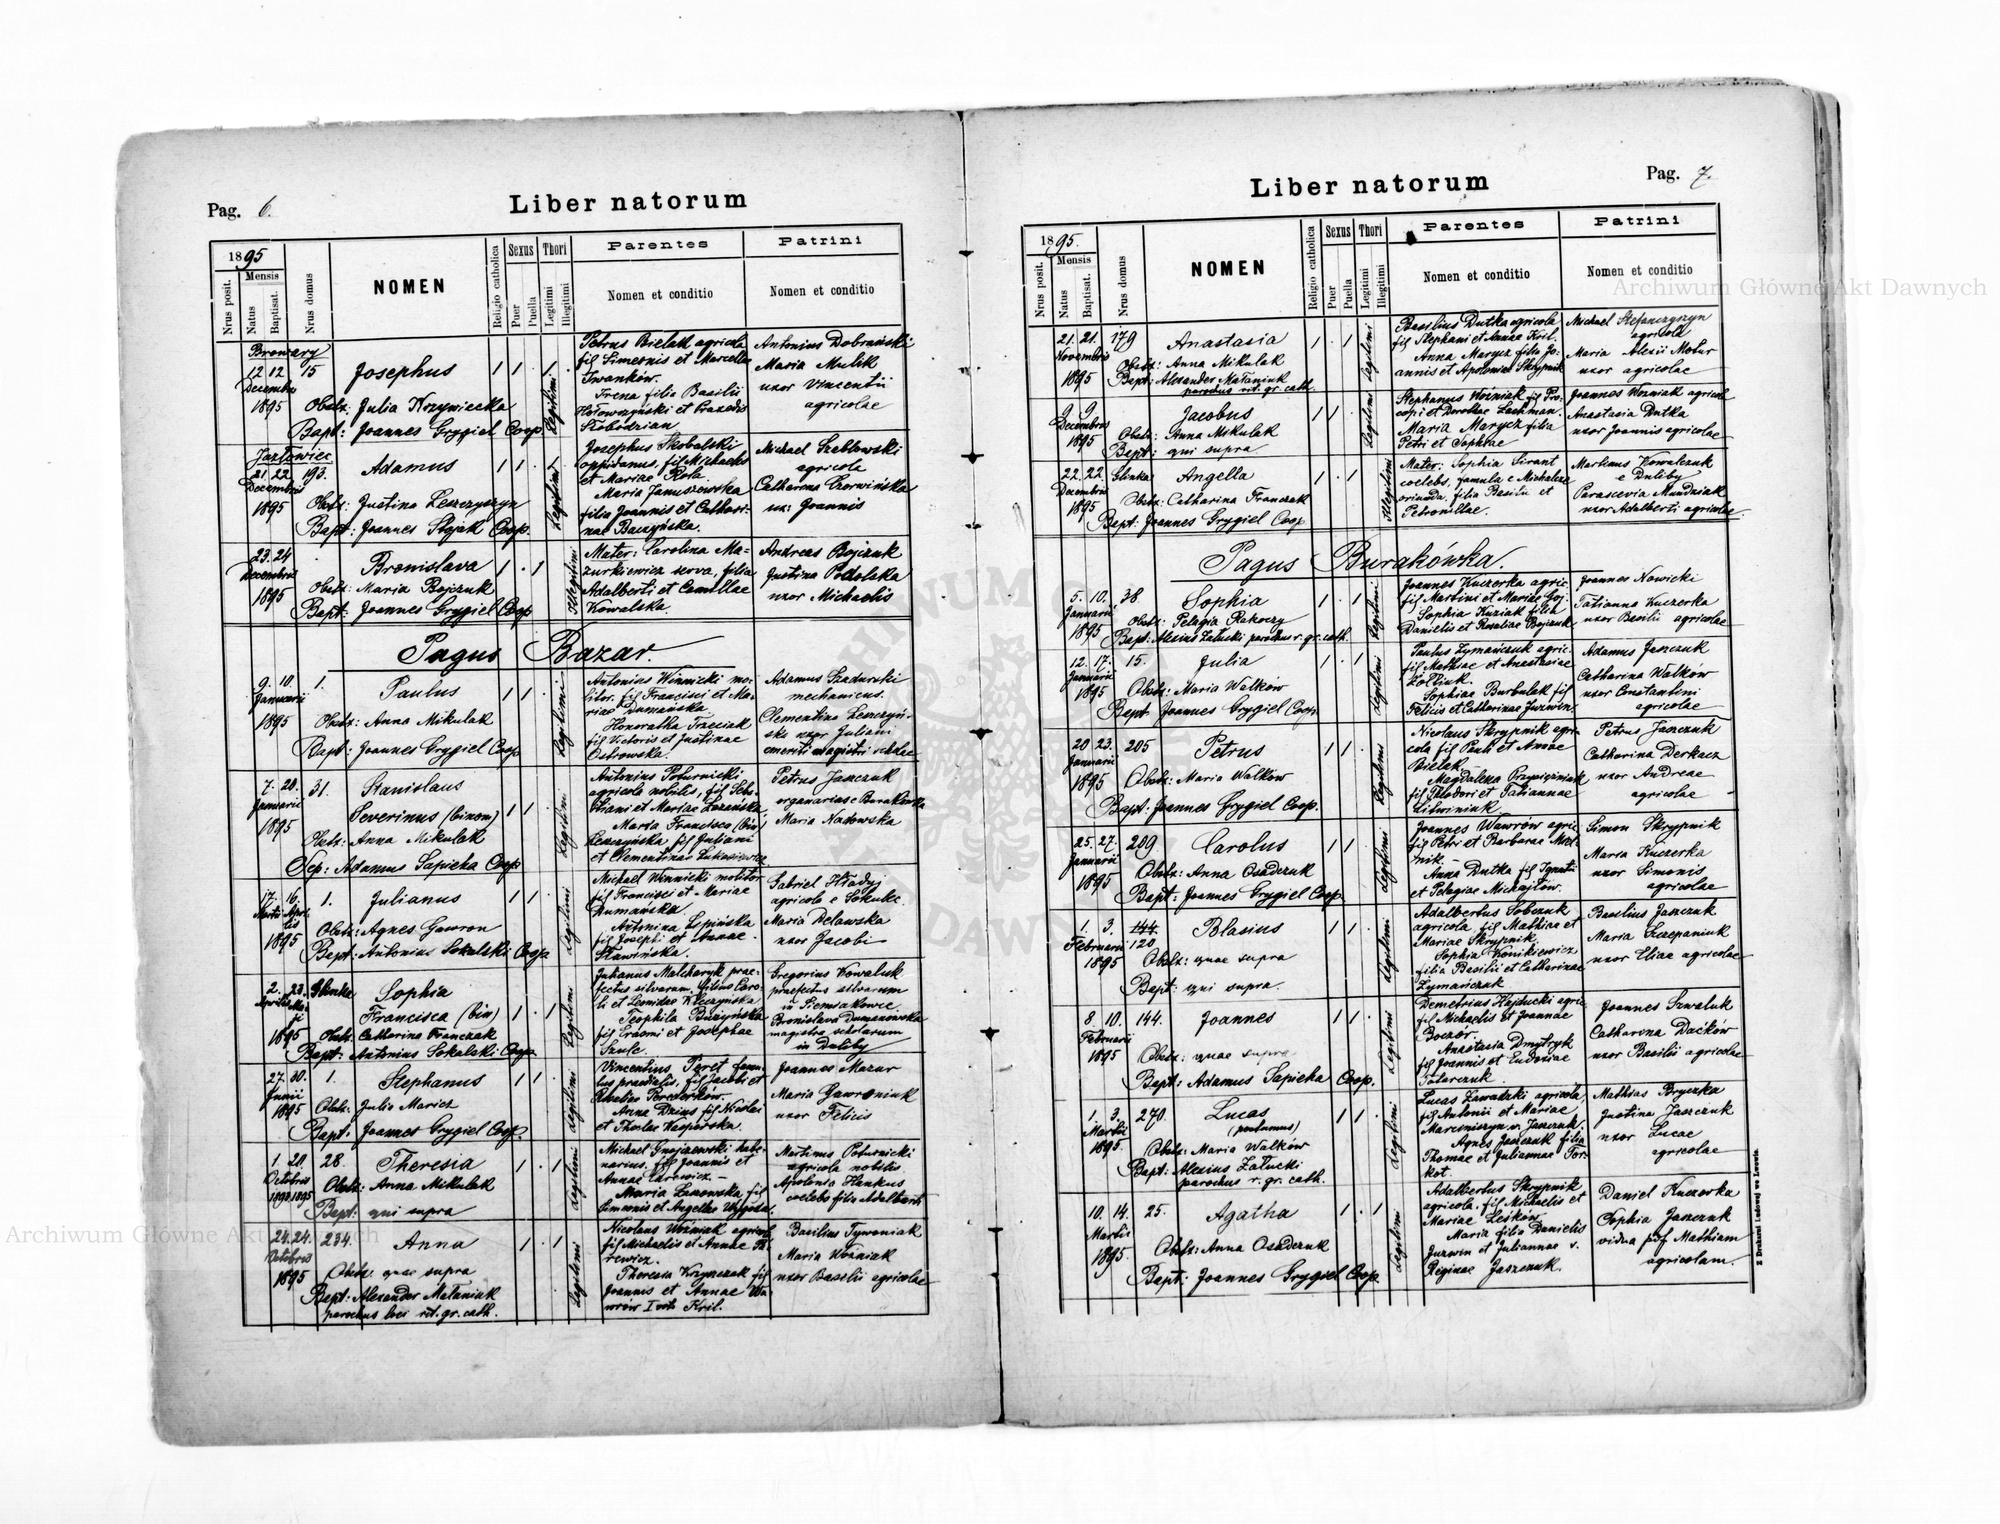 Pag. 6.
Liber natorum
1895
Mensis
Nrus posit.
Natus
Baptisat.
Nrus domus
NOMEN
Religio catholica
Sexus
Puer
Puella
Thori
Legitimi
Illegitimi
Parentes
Nomen et conditio
Patrini
Nomen et conditio
Browary
12 12 15 Josephus
Decembris
1895
Obstx: Julia Krzywiecka
Bapt: Joannes Grygiel Coop.
Legitimi
Petrus Bielak agricola
fil Simeonis et Marcellae
Iwanków.
Irena filia Basilii
Hołowczyński et Praxedis
Słobodzian
Antonius Dobrański
Maria Mulik
uxor Vincentii
agricolae
Jazłowiec
21. 22. 193. Adamus
Decembris
1895
Obstx: Justina Leszczyszyn
Bapt: Joannes Stojak Coop.
Legitimi
Josephus Skobalski
oppidanus, fil Michaelis
et Mariae Rola.
Maria Januszewska
filia Joannis et Cathari-
nae Baczyńska.
Michael Szeblowski
agricola
Catharena Czerwińska
ux: Joannis
23. 24 Bronislava
Decembris
1895
Obstx: Maria Bojczuk
Bapt: Joannes Grygiel Coop
Illegitimi
Mater: Carolina Ma-
zurkiewicz serva, filia
Adalberti et Camillae
Kowalska.
Andreas Bojczuk
Justina Podolska
uxor Michaelis
Pagus Bazar.
9. 10. 1. Paulus
Januarii
1895
Obstx: Anna Mikulak
Bapt: Joannes Grygiel Coop
Legitimi
Antonius Winnicki mo-
litor. fil Francisci et Ma-
riae Dumańska.
Honoratha Trzeciak
fil Victoris et Justinae
Ostrowska.
Adamus Szadurski
mechanicus.
Clementina Leszczyń-
ska uxor Juliani
emeriti magistri scholae
7. 20. 31. Stanislaus
Januarii
1895
Severinus (binom)
Obstx: Anna Mikulak
Bap: Adamus Sapieha Coop
Legitimi
Antonius Poturnicki
agricola nobilis, fil Seba-
stiani et Mariae Łozińska
Maria Francisca (bin)
Leszczyńska fil Juliani
et Clementinae Lukasiewicz
Petrus Jaszczuk
organarius e Burakówka
Maria Nadowska
17. 16. 1. Julianus
Martii Aprilis
1895
Obstx: Agnes Gawron
Bapt: Antonius Sokalski Coop
Legitimi
Michael Winnicki molitor
fil Francisci et Mariae
Dumańska.
Antonina Lipińska
fil Josephi et Annae
Sławińska.
Gabriel Hładyj
agricola e Sokulec
Maria Delawska
uxor Jacobi
2. 23. Glinka Sophia
Aprilis Maji
1895
Francisca (bin)
Obstx: Catharina Franczak
Bapt: Antonius Sokalski Coop
Legitimi
Julianus Malcharyk prae-
fectus silvarum, filius Caro-
li et Leonidae Kleczyńska
Theophila Buszyńska
fil Erasmi et Josephae
Szulc.
Gregorius Kowaluk
praefectus silvarum
in Piemiakowce
Bronislava Dumanowska
magistra scholarum
in Duliby
27. 30. 1. Stephanus
Junii
1895
Obstx: Julia Maricz
Bapt: Joannes Grygiel Coop.
Legitimi
Vincentius Peret famu-
lus praedialis, fil Jacobi et
Rosaliae Ferederków.
Anna Dzius fil Nicolai
et Theclae Kasperska.
Joannes Mazur
Maria Gawroniuk
uxor Felicis
1. 20. 28. Theresia
Octobris
1892. 1895
Obstx: Anna Mikulak
Bapt: qui supra
Legitimi
Michael Gnojzewski habe-
narius, fil Joannis et
Annae Carewicz.
Maria Lanowska fil
Simeonis et Angelae Wypska.
Martinus Poturnicki
agricola nobilis
Apolonia Henkus
coelebs filia Adalberti
24. 24. 234. Anna
Octobris
1895
Obstx: quae supra
Bapt: Alexander Mataniuk
parochus loci rit. gr. cath.
Legitimi
Nicolaus Woźniak agricol
fil Michaelis et Annae Th-
rewicz.
Theresia Krzyszczak fil
Joannis et Annae Wa-
wrów I voto Kril.
Basilius Tywoniak
Maria Woźniak
uxor Basilii agricolae
Pag. 7.
Liber natorum
1895.
Mensis
Nrus posit.
Natus
Baptisat.
Nrus domus
NOMEN
Religio catholica
Sexus
Puer
Puella
Thori
Legitimi
Illegitimi
Parentes
Nomen et conditio
Patrini
Nomen et conditio
21. 21. 179 Anastasia
Novembris
1895
Obstx: Anna Mikulak
Bapt: Alexander Mataniuk
parochus rit. gr. cath.
Legitimi
Basilius Dutka agricola
fil Stephani et Annae Kril.
Anna Marycz filia Jo-
annis et Apoloniae Skrypnik
Michael Stefanczyszyn
agricola
Maria Alexii Motur
uxor agricolae
9. 9. Jacobus
Decembris
1895
Obstx: Anna Mikulak
Bapt: qui supra
Legitimi
Stephanus Woźniak fil Pro-
copi et Dorotheae Lachman.
Maria Marycz filia
Petri et Sophiae
Joannes Woźniak agricola
Anastasia Dutka
uxor Joannis agricolae
22. 22. Glinka Angella
Decembris
1895
Obstx: Catharina Franczak
Bapt: Joannes Grygiel Coop
Illegitimi
Mater: Sophia Sirant
coelebs, famula e Michalcze
oriunda, filia Basilii et
Petronillae.
Martinus Kowalczuk
e Duliby
Parascevia Mundziak
uxor Adalberti agricolae
Pagus Burakówka.
5. 10. 38 Sophia
Januarii
1895
Obstx: Pelagia Rakoczy
Bapt: Alexius Załucki parochus r. gr. cath.
Legitimi
Joannes Kuczerka agric.
fil Martini et Mariae Goj.
Sophia Kuziak filia
Danielis et Rosaliae Bojczuk
Joannes Nowicki
Tatianna Kuczerka
uxor Basilii agricolae
12. 17. 15. Julia
Januarii
1895
Obstx: Maria Walków
Bapt Joannes Grygiel Coop
Legitimi
Paulus Zymańczuk agric.
fil Mathiae et Anastasiae
Żołtiuk.
Sophiae Burbulak fil
Felicis et Catharinae Juzwin.
Adamus Jaszczuk
Catharina Walków
uxor Constantini
agricolae
20 23. 205 Petrus
Januarii
1895
Obstx: Maria Walków
Bapt: Joannes Grygiel Coop.
Legitimi
Nicolaus Skrypnik agri-
cola fil Pauli et Annae
Bielek.
Magdalena Przysiężniak
fil Theodori et Tatiannae
Litwiniuk
Petrus Jaszczuk
Catharina Derkacz
uxor Andreae
agricolae
25. 27. 209 Carolus
Januarii
1895
Obstx: Anna Osadczuk
Bapt: Joannes Grygiel Coop
Legitimi
Joannes Wawrów agric
fil Petri et Barbarae Miel-
nik.
Anna Dutka fil Ignatii
et Pelagiae Michajłów.
Simon Skrypnik
Maria Kuczerka
uxor Simonis
agricolae
1. 3. 144. 120 Blasius
Februarii
1895
Obstx: quae supra
Bapt: qui supra.
Legitimi
Adalbertus Sobczuk
agricola, fil Mathiae et
Mariae Skrypnik.
Sophia Konikiewicz
filia Basilii et Catharinae
Zymańczuk
Basilius Jaszczuk
Maria Szczepaniuk
uxor Eliae agricolae
8. 10. 144. Joannes
Februarii
1895
Obstx: quae supra
Bapt: Adamus Sapieha Coop.
Legitimi
Demetrius Hajducki agric
fil Michaelis et Joannae
Boczór.
Anastasia Dmytryk
fil Joannis et Eudoxiae
Totarczuk
Joannes Szwaluk
Catharena Daćków
uxor Basilii agricolae
1. 3. 270. Lucas
Martii
1895.
(postumus)
Obstx: Maria Walków
Bapt: Alexius Załucki
parochus r. gr. cath.
Legitimi
Lucas Zawadzki agricola
fil Antonii et Mariae
Marciniszyn v. Jaszczuk.
Agnes Jaszczuk filia
Thomae et Juliannae Tor-
kot
Mathias Bryczka
Justina Jaszczuk
uxor Lucae
agricolae
10. 14. 25. Agatha
Martii
1895.
Obstx: Anna Osadczuk
Bapt: Joannes Grygiel Coop
Legitimi
Adalbertus Skrypnik
agricola, fil Michaelis et
Mariae Leśków
Maria filia Danielis
Juzwin et Juliannae v.
Reginae Jaszczuk.
Daniel Kuczerka
Sophia Jaszczuk
vidua p/f Mathiam
agricolam.
Z Drukarni Ludowej we Lwowie.
Archiwum Główne Akt Dawnych
Archiwum Główne Akt Dawnych